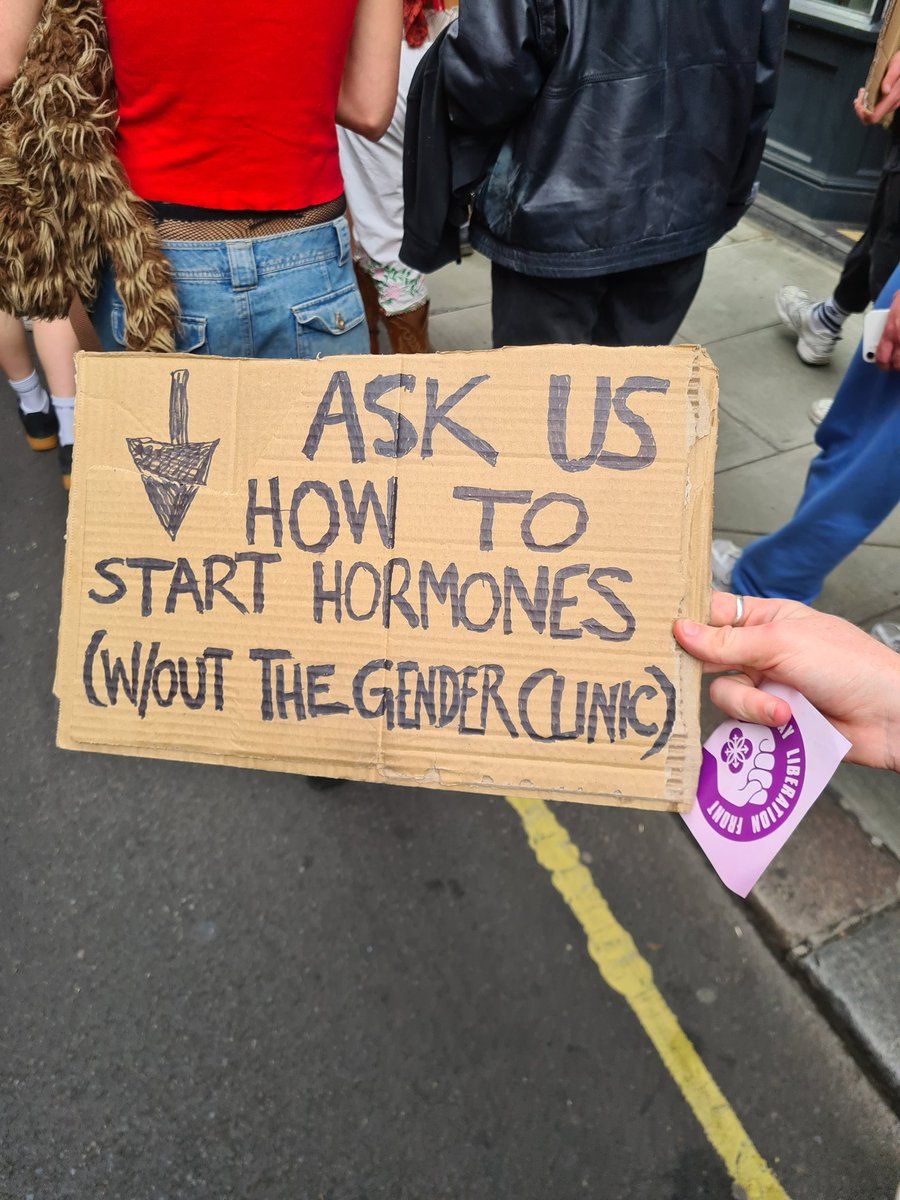 ASK US
HOW TO
START HORMONES
(W/OUT THE GENDER CLINIC)
LIBERATION FRONT